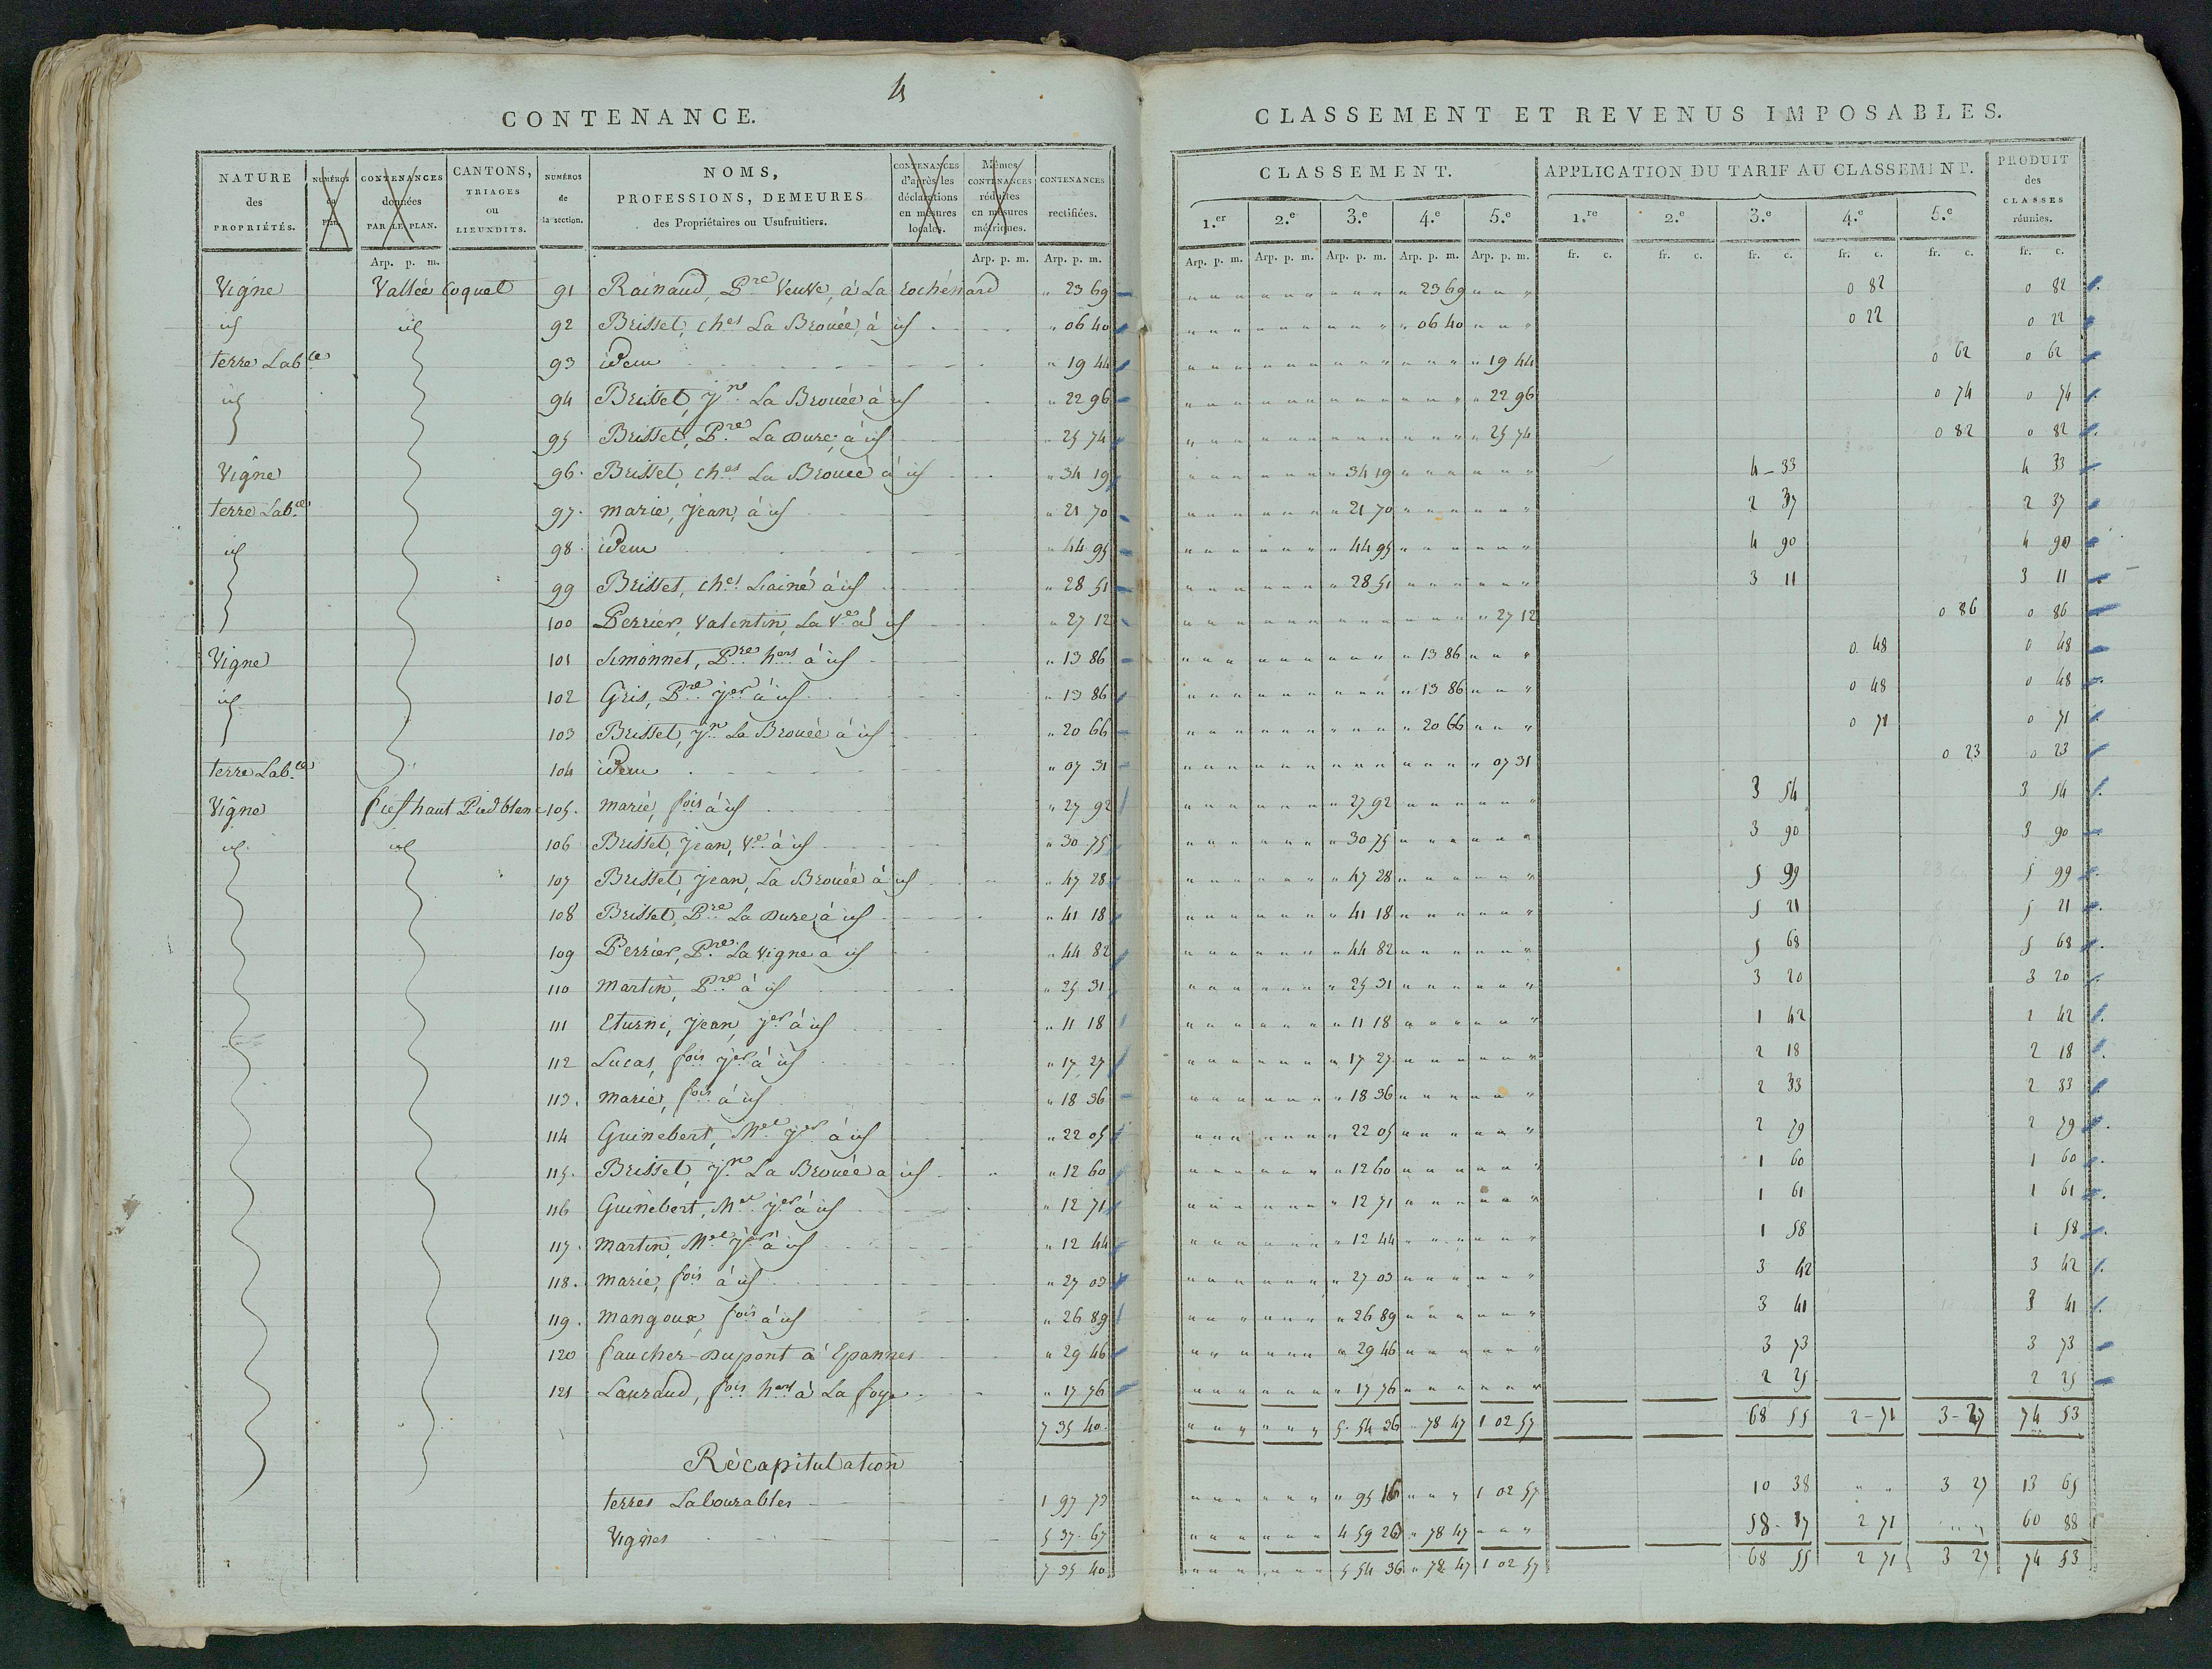 4
CONTENANCE.
NATURE des PROPRIÉTÉS. NUMÉROS du Plan. CONTENANCES données PAR LE PLAN. CANTONS, TRIAGES ou LIEUXDITS. NUMÉROS de la section. NOMS, PROFESSIONS, DEMEURES des Propriétaires ou Usufruitiers. CONTENANCES d'après les déclarations en mesures locales. Mêmes CONTENANCES réduites en mesures métriques. CONTENANCES rectifiées.
Arp. p. m. Arp. p. m. Arp. p. m.
Vigne Vallée Coquet 91 Rainaud, Pre Veuve, à La Rochénard " 23 69
id id 92 Brisset, Ches La Brouée, à id " 06 40
terre Lable 93 idem " 19 44
id 94 Brisset, Jn La Brouée à id " 22 96
95 Brisset, Pre La Dure, à id " 25 74
Vigne 96. Brisset, Ches La Brouée à id " 34 19
terre Lable 97. Marié, Jean, à id " 21 70
id 98. idem " 44 95
99 Brisset, Ches Lainé à id " 28 51
100 Perrier, Valentin, La Ve à id " 27 12
Vigne 101 Simonnet, Pre hers à id " 13 86
id 102 Gris, Pre Jer à id " 13 86
103 Brisset, Jn La Brouée à id " 20 66
terre Lable 104 idem " 07 31
Vigne fief haut Pied blanc 105. Marié, fois à id " 27 92
id id 106 Brisset, Jean, Ve à id " 30 75
107 Brisset, Jean, La Brouée à id " 47 28
108 Brisset, Pre La Dure, à id " 41 18
109 Perrier, Pre La Vigne à id " 44 82
110 Martin, Pre à id " 25 31
111 Eturni, Jean, Jer à id " 11 18
112 Lucas, fois Jer à id " 17 27
113. Marié, fois à id " 18 36
114 Guinebert, Mel Jer à id " 22 05
115. Brisset, Jn La Brouée à id " 12 60
116 Guinebert, Mel Jer à id " 12 71
117. Martin, Mel Jer à id " 12 44
118. Marié, fois à id " 27 03
119. Mangoux, fois à id " 26 89
120 faucher-Dupont à Epannes " 29 46
121 Lauraud, fois hers à La foye " 17 76
7 35 40
Récapitulation
terres Labourables 1 97 73
Vignes 5 37 67
7 35 40
CLASSEMENT ET REVENUS IMPOSABLES.
CLASSEMENT. APPLICATION DU TARIF AU CLASSEMENT. PRODUIT des CLASSES réunies.
1.er 2.e 3.e 4.e 5.e 1.re 2.e 3.e 4.e 5.e
Arp. p. m. Arp. p. m. Arp. p. m. Arp. p. m. Arp. p. m. fr. c. fr. c. fr. c. fr. c. fr. c. fr. c.
" 23 69 0 82 0 82
" 06 40 0 22 0 22
" 19 44 0 62 0 62
" 22 96 0 74 0 74
" 25 74 0 82 0 82
" 34 19 4-33 4 33
" 21 70 2 37 2 37
" 44 95 4 90 4 90
" 28 51 3 11 3 11
" 27 12 0 86 0 86
" 13 86 0 48 0 48
" 13 86 0 48 0 48
" 20 66 0 71 0 71
" 07 31 0 23 0 23
" 27 92 3 54 3 54
" 30 75 3 90 3 90
" 47 28 5 99 5 99
" 41 18 5 21 5 21
" 44 82 5 68 5 68
" 25 31 3 20 3 20
" 11 18 1 42 1 42
" 17 27 2 18 2 18
" 18 36 2 33 2 33
" 22 05 2 79 2 79
" 12 60 1 60 1 60
" 12 71 1 61 1 61
" 12 44 1 58 1 58
" 27 03 3 42 3 42
" 26 89 3 41 3 41
" 29 46 3 73 3 73
" 17 76 2 25 2 25
5 54 36 " 78 47 1 02 57 68 55 2-71 3-27 74 53
" 95 16 1 02 57 10 38 " " 3 27 13 65
4 59 26 " 78 47 58-17 2 71 " " 60 88
5 54 36 " 78 47 1 02 57 68 55 2 71 3 27 74 53